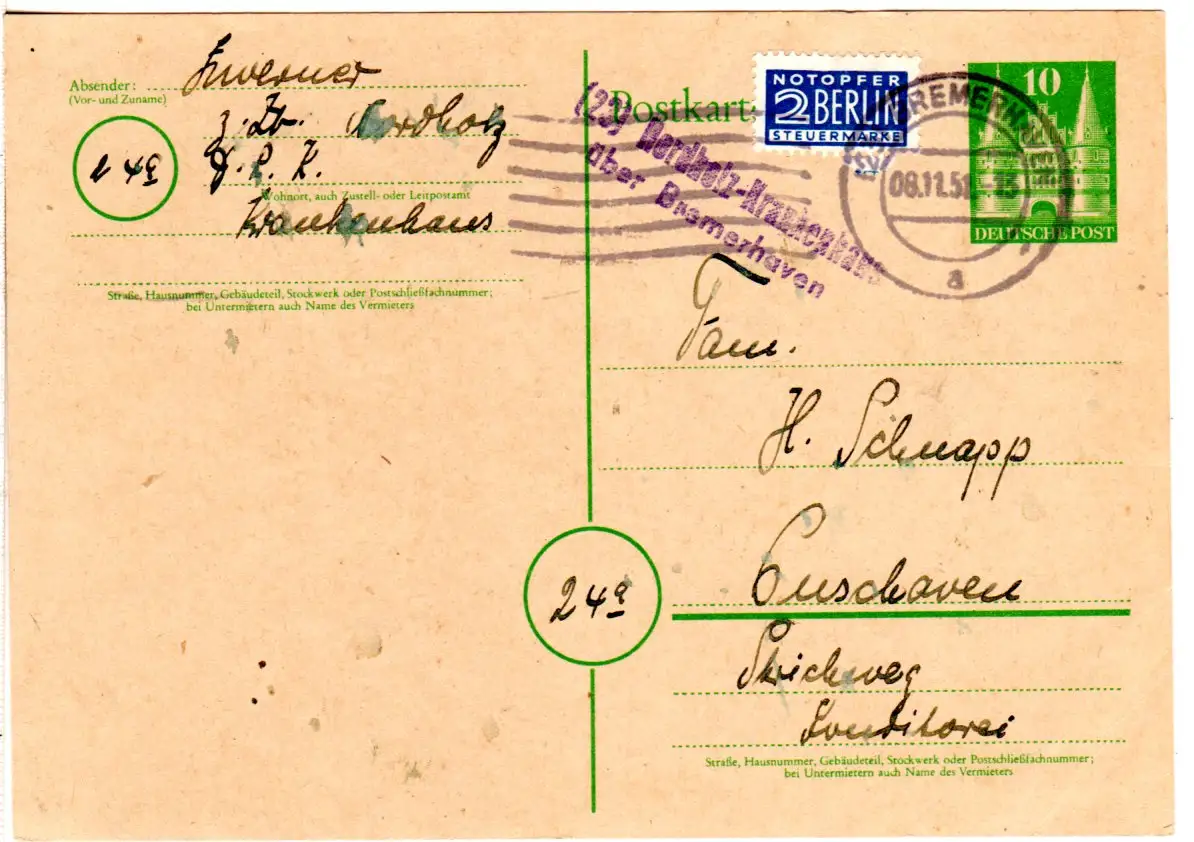 Absender:
(Vor- und Zuname)
z. Zt. Nordholz
D. R. K.
24a
Wohnort, auch Zustell- oder Leitpostamt
Krankenhaus
Straße, Hausnummer, Gebäudeteil, Stockwerk oder Postschließfachnummer;
bei Untermietern auch Name des Vermieters
Postkart
NOTOPFER
2 BERLIN
STEUERMARKE
(23) Nordholz-Krankenhaus
über Bremerhaven
BREMERHA
08.11.51
a
10
DEUTSCHE POST
Fam.
H. Schnapp
Cuxhaven
24a
Strichweg
Konditorei
Straße, Hausnummer, Gebäudeteil, Stockwerk oder Postschließfachnummer;
bei Untermietern auch Name des Vermieters